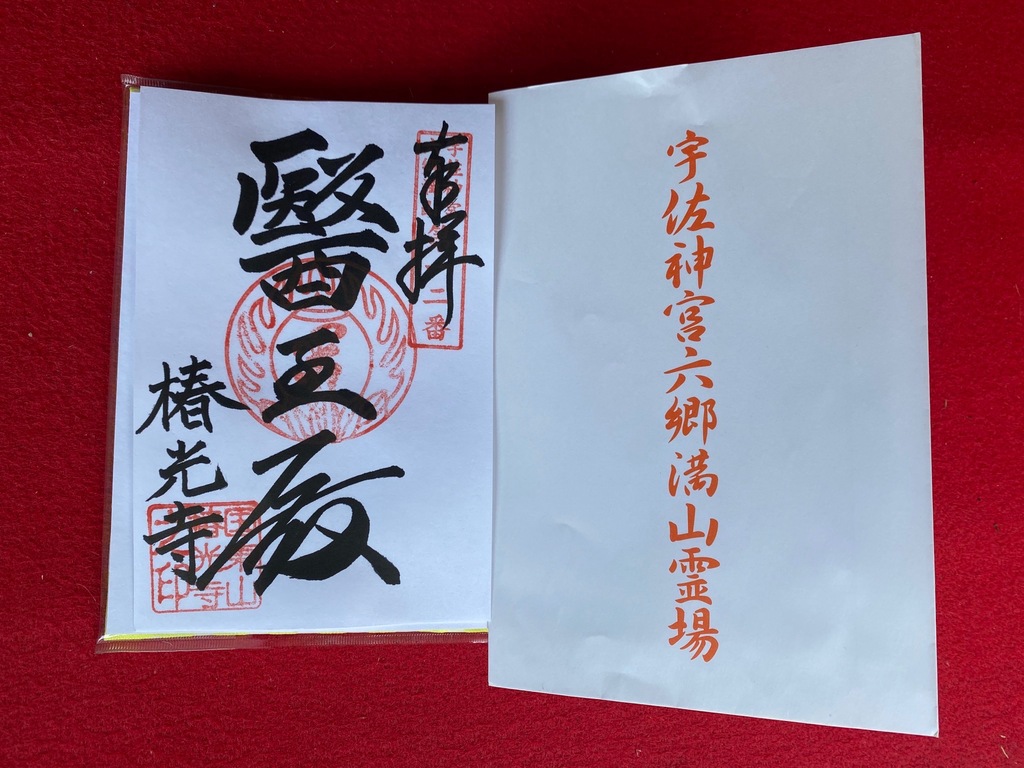 奉拝
二番
醫王殿
椿光寺
宇佐神宮六郷満山霊場